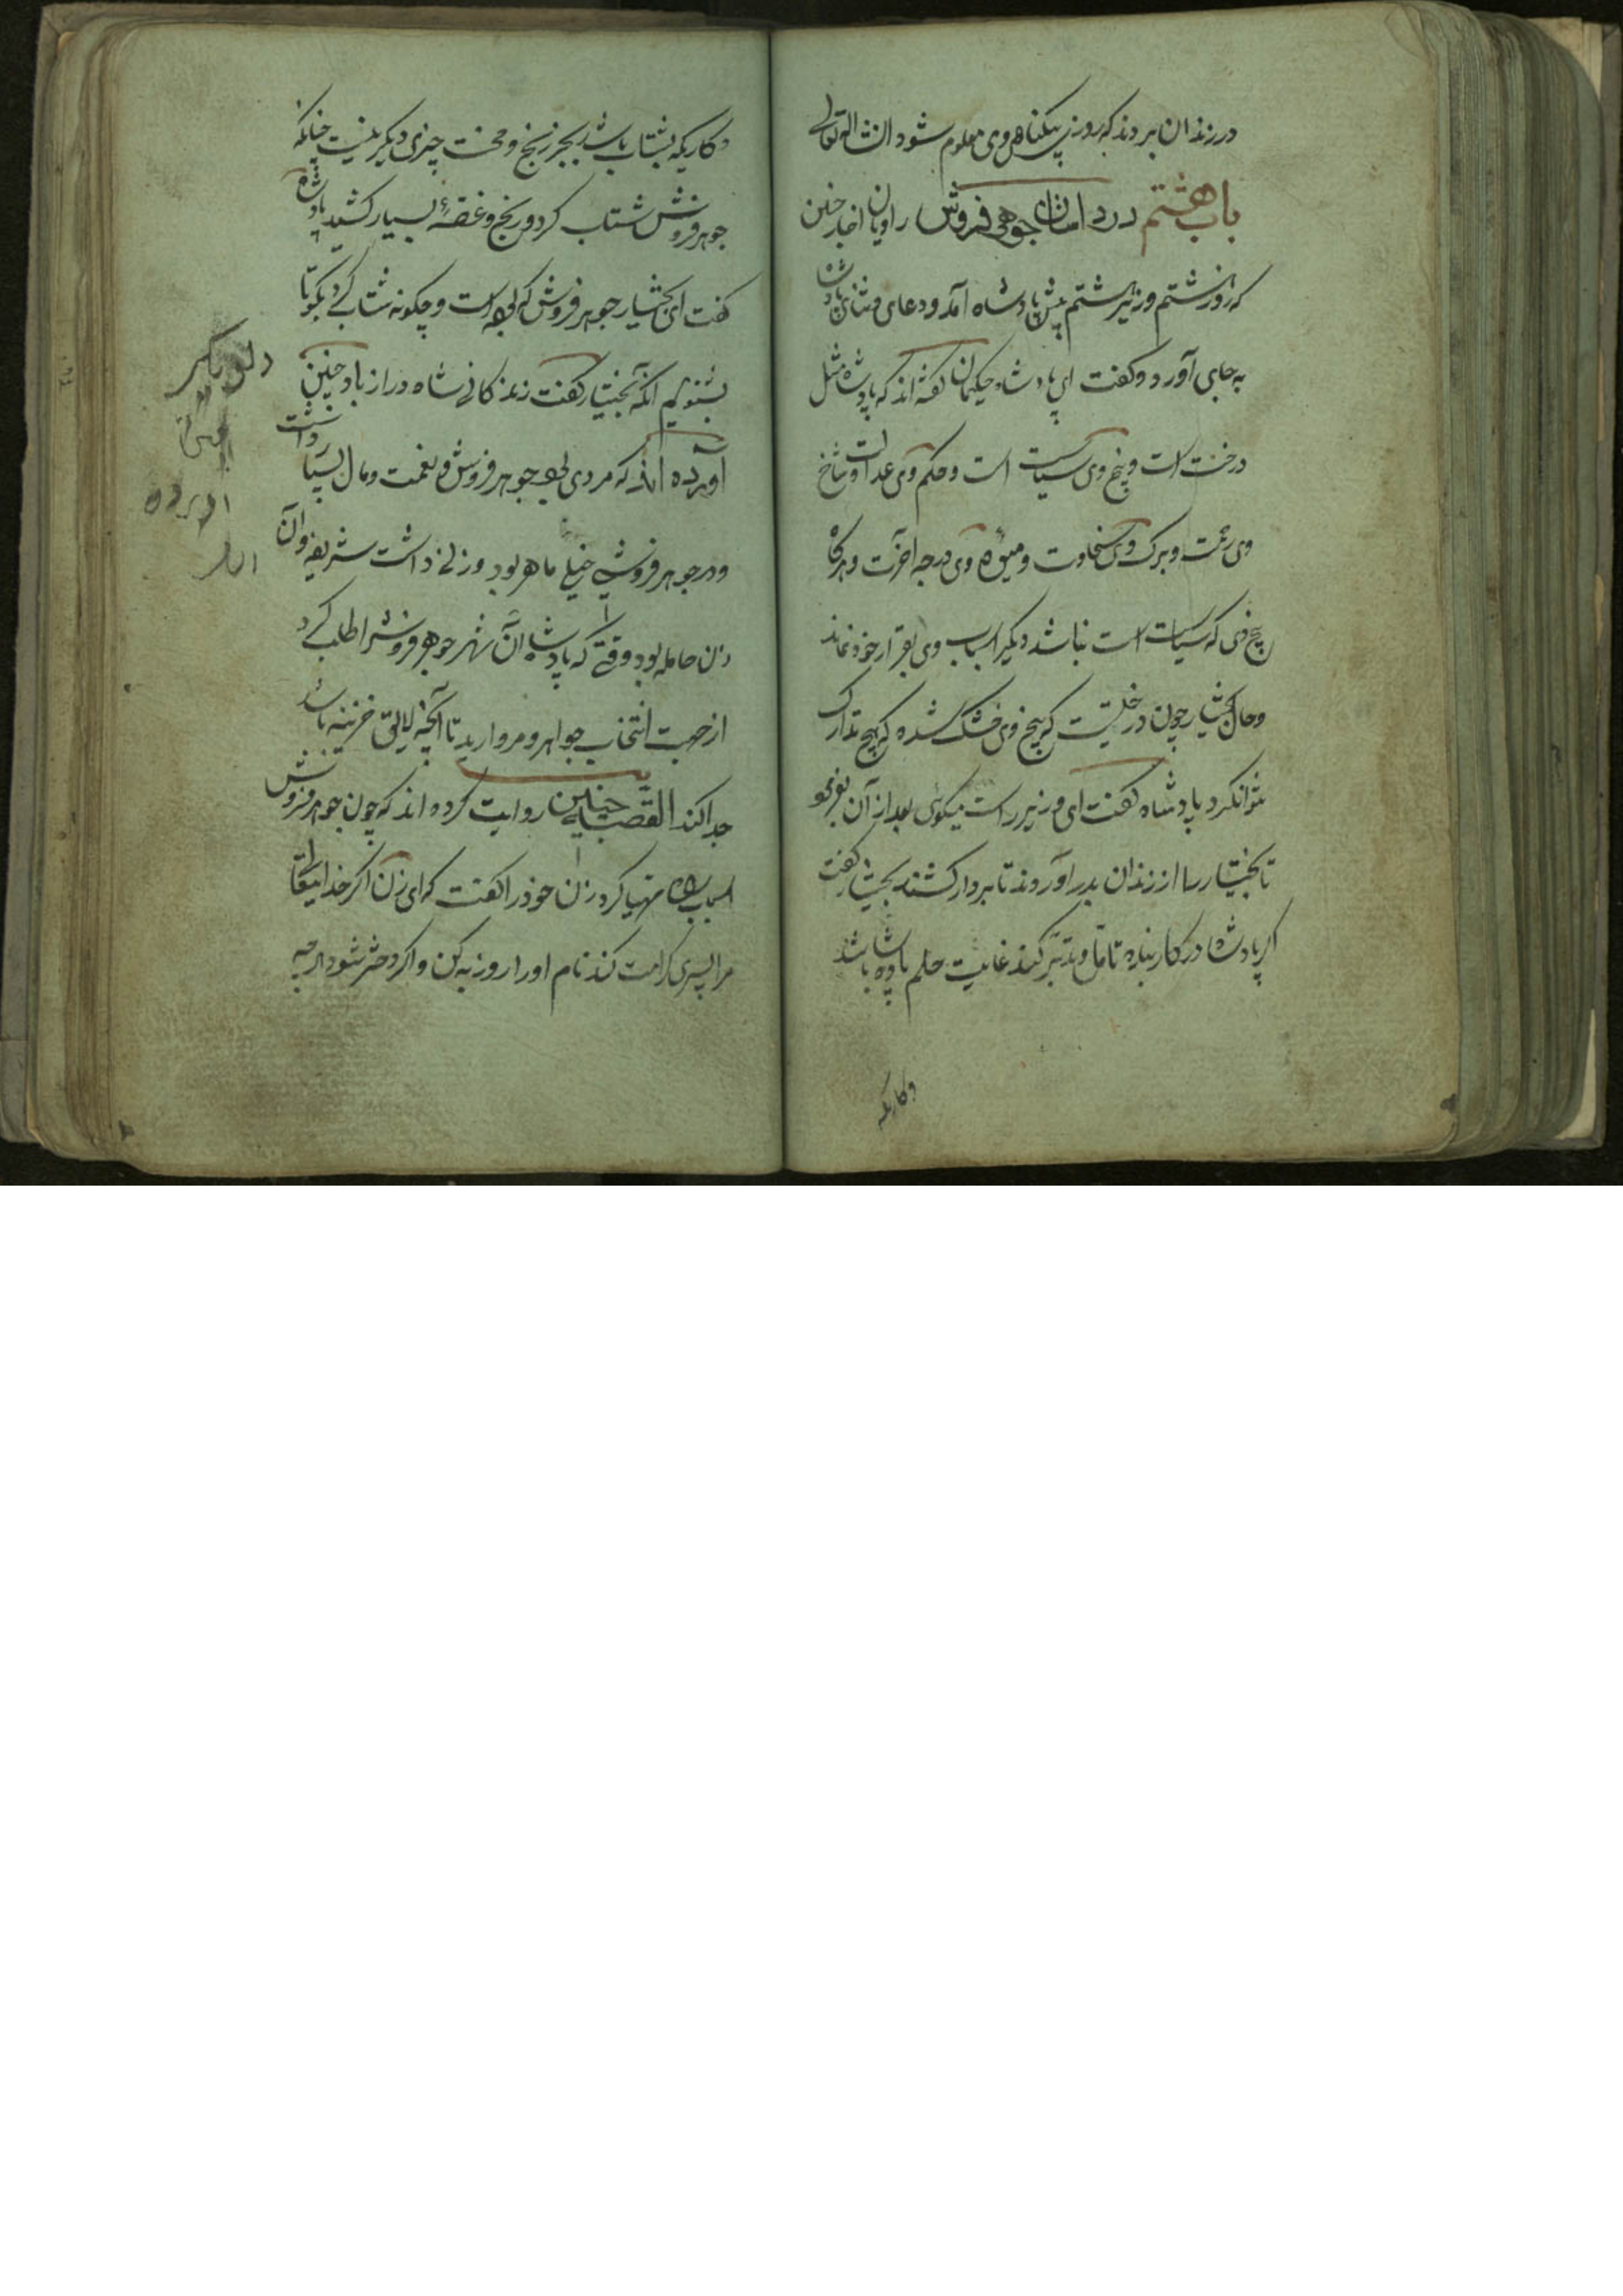 در زندان بردند که روز بیکناهی وی معلوم شود انشا الله تعالی
باب هشتم در داستان جوهر فروش راویان اخبار چنین
که روز هشتم وزیر هشتم پیش پادشاه آمد و دعای و ثنای پادشاه
به جای آورد و گفت ای پادشاه حکیمان گفته اند که پادشاه مثل
درخت است و بیخ وی سیاست است و حکم وی عدالت و شاخ
وی رحمت و برک وی سخاوت و میوه وی درجه آخرت و هرکاه
بیخ وی که سیاست است نباشد دیگر اسباب وی بقرار خود نماند
و حال بختیار چون درختیست که بیخ وی خشک شده که هیچ تدارک
نتوان کرد پادشاه گفت ای وزیر راست میکوئی بعد از آن بفرمود
تا بختیار را از زندان بدر آوردند تا بردار کشند بختیار گفت
اکر پادشاه در کار بنده تامل و تدبر کند غایت حلم پادشاه باشد
وکاریکه
وکاریکه بشتاب باشد بجز رنج و محنت چیزی دیگر نیست چنانکه
جوهر فروش شتاب کرد و رنج و غصهٔ بسیار کشید پادشاه
گفت ای بختیار جوهر فروش که بوده است و چکونه شتاب کرد بکو تا
بشنویم آنکه بختیار گفت زندکانی شاه دراز باد چنین
آورده اند که مردی بود جوهر فروش و نعمت و مال بسیار داشت
و در جوهر فروشی خیلی ماهر بود و زنی داشت شریفه و آن
زن حامله بود وقتی که پادشاه آن شهر جوهر فروش را طلب کرد
از جهت انتخاب جواهر و مروارید تا آنچه لایق خزینه باشد
جدا کند القصه چنین روایت کرده اند که چون جوهر فروش
اسباب راه مهیا کرد زن خود را گفت که ای زن اکر خدایتعالی
مرا پسری کرامت کند نام او را روزبه کن و اکر دختر شود هرچه
آورده